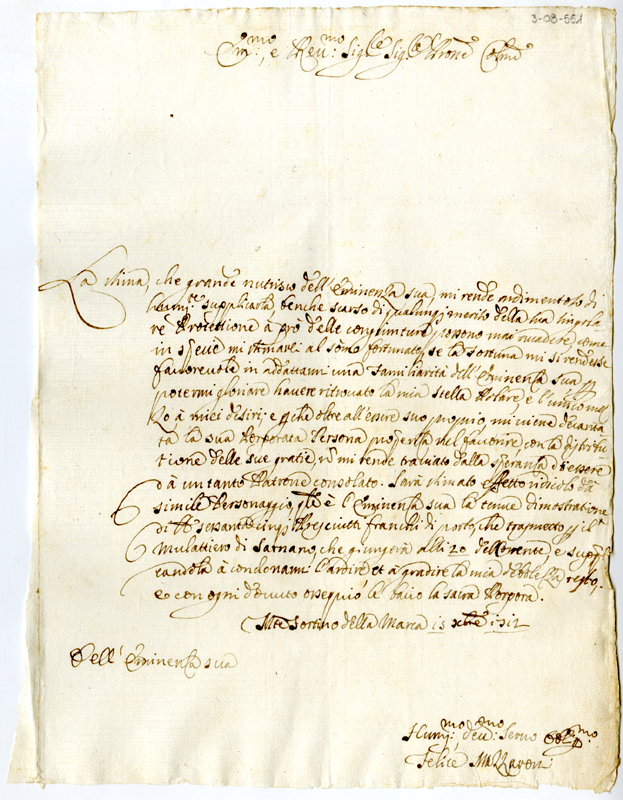 3-08-551
Em:mo, e Reu:mo Sig.re Sig.re Prone Colmo
La stima, che grande nutrisco dell'Eminenza sua, mi rende ardimentoso di
supplicarla, benche scarso di qualunq; merito della sua singola
re Protettione à prò delle congiunture, possono mai accadere, come
in speue mi stimarei al somo fortunato, se la fortuna mi si rendesse
fauoreuole in addattarmi una familiarità dell'Eminenza sua p
potermi gloriare hauere ritrouato la mia stella Polare, e l'unico
à miei desiri; e p che oltre all'essere suo proprio, mi uiene decanta
ta la sua Porporata Persona propensa nel fauorire, con la distribu
tione delle sue gratie, mi rende trauiato dalla speranza d'essere
dà un tanto Patrone consolato. Sarà stimato effetto ridicolo dà
simile Personaggio, qle è l'Eminenza sua la tenue dimostratione
di sessanta cinq; Presciutti franchi di porto, che trasmetto p il
Mulattiero di Sarnano, che giungerà alli 20 dell corrente, e suppli
candola à condonarmi l'ardire et à gradire la mia debolezza resto,
e con ogni douuto ossequio le bacio la sacra Porpora.
Mte Fortino della Marca 13 xbre 1712
Dell'Eminenza sua
Humi:mo deu:mo Seruo Obl:mo
Felice Mazzaroni